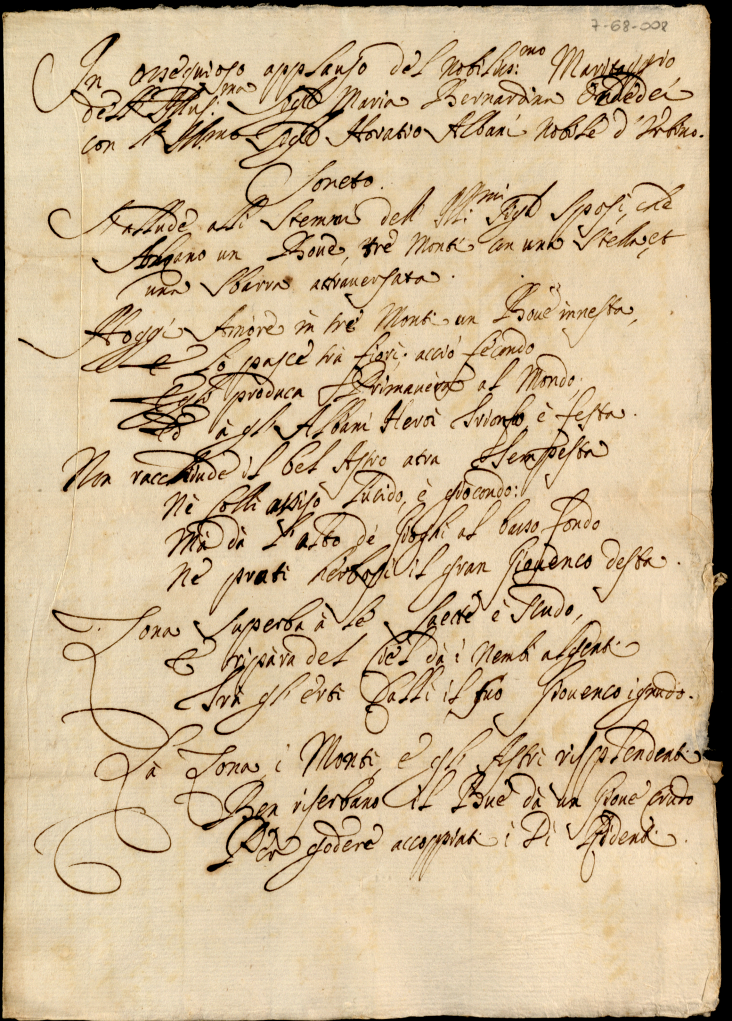 7-68-008
In ossequioso applauso del Nobiliss:mo Maritaggio
dell' Illus:ma Sigra Maria Bernardina Ondedei
con l' Illmo Sigr Horatio Albani Nobile d'Urbino.
Soneto.
S'allude alli Stemmi dell' Illmi Sigri Sposi, che
Alzano un Boue, trè Monti con una Stella, et
una Sbarra attrauersata.
Hoggi Amore in trè Monti un Boue innesta,
E lo pasce trà fiori; acciò fecondo
Egli produca Primauera al Mondo;
Ed à gli Albani Heroi Trionfo, è festa.
Non racchiude il bel Astro atra Tempesta
Nè Colli assiso Lucido, è giocondo:
Mà dà l'alto dè Gioghi al basso fondo
Nè prati herbosi il gran Giouenco desta.
Zona superba à lè Saette è Scudo,
E ripara del Ciel dà i Nembi algenti
Trà gli erti Calli il suo Giouenco ignudo.
La Zona, i Monti, e gli Astri risplendenti
Ben riserbano il Bue dà un Gioue crudo
Per godere accoppiati i Dì ridenti.